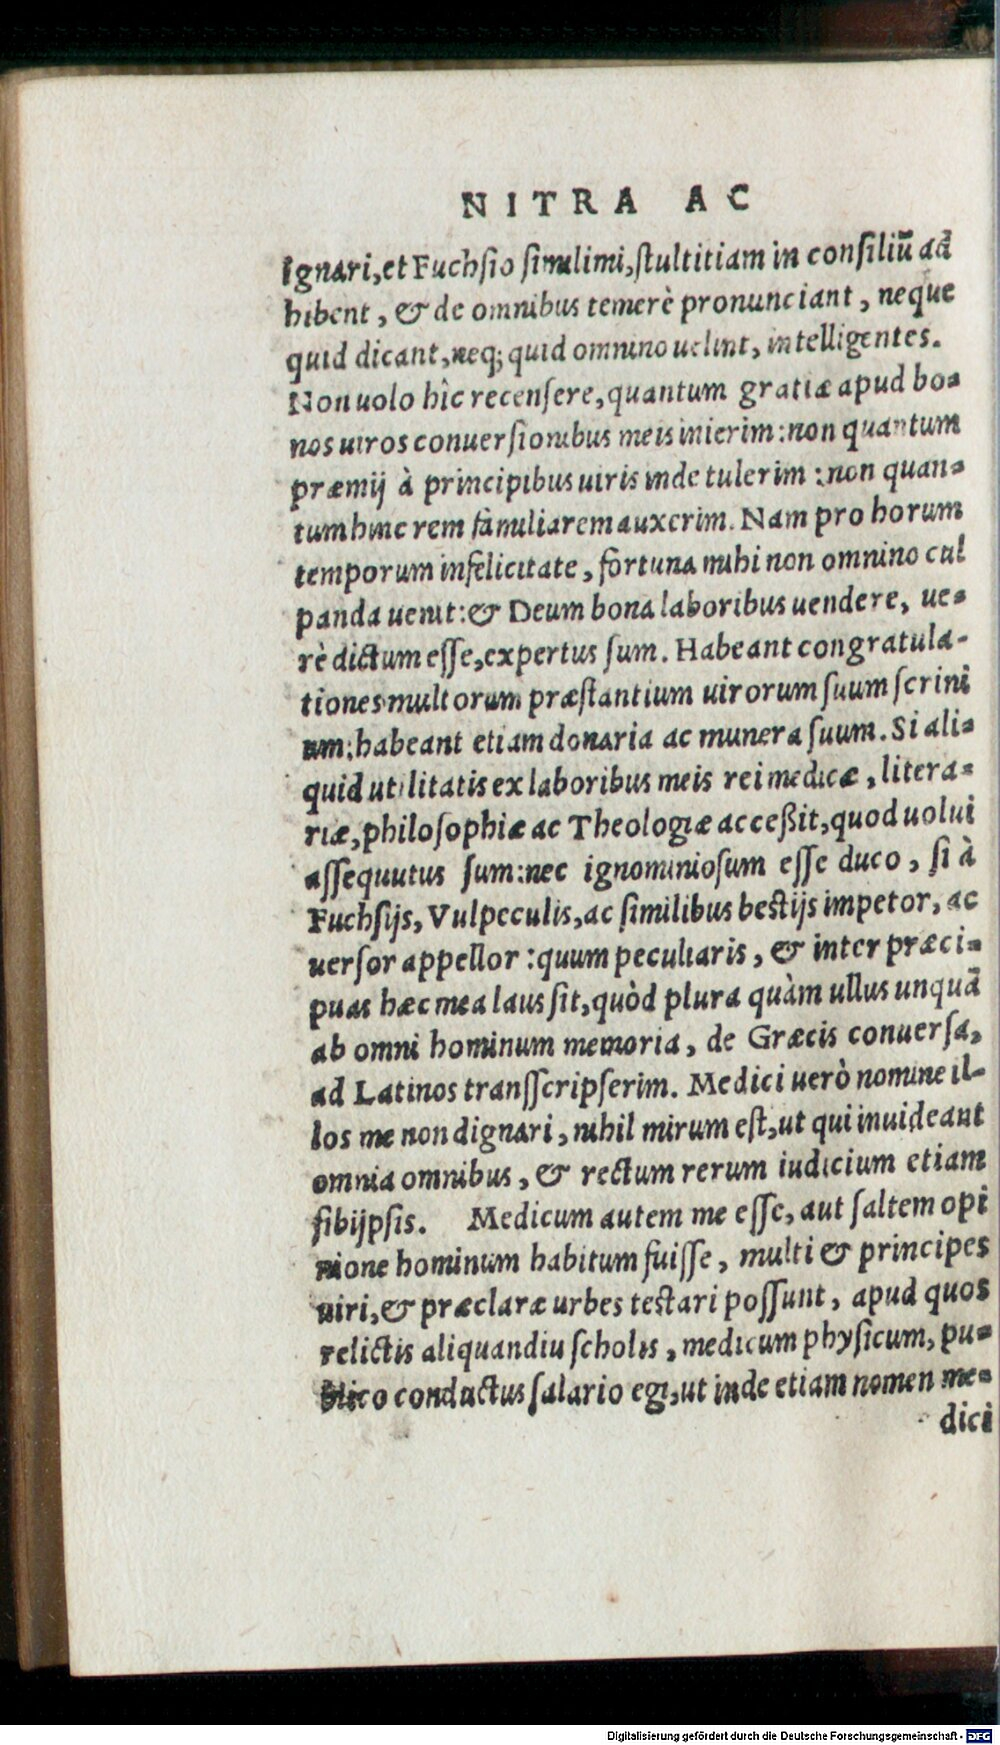 NITRA AC
ignari, et Fuchsio simillimi, stultitiam in consiliū ad
hibent, & de omnibus temerè pronunciant, neque
quid dicant, neq; quid omnino uelint, intelligentes.
Non uolo hìc recensere, quantum gratiæ apud bo=
nos uiros conuersionibus meis inierim: non quantum
præmij à principibus uiris inde tulerim: non quan=
tum hinc rem familiarem auxerim. Nam pro horum
temporum infelicitate, fortuna mihi non omnino cul
panda uenit: & Deum bona laboribus uendere, ue=
rè dictum esse, expertus sum. Habeant congratula-
tiones multorum præstantium uirorum suum scrini
um: habeant etiam donaria ac munera suum. Si ali=
quid utilitatis ex laboribus meis rei medicæ, litera=
riæ, philosophiæ ac Theologiæ acceßit, quod uolui
assequutus sum: nec ignominiosum esse duco, si à
Fuchsijs, Vulpeculis, ac similibus bestijs impetor, ac
uersor appellor: quum peculiaris, & inter præci=
puas hæc mea laus sit, quòd plura quàm ullus unquā
ab omni hominum memoria, de Græcis conuersa,
ad Latinos transscripserim. Medici uerò nomine il-
los me non dignari, nihil mirum est, ut qui inuideant
omnia omnibus, & rectum rerum iudicium etiam
sibijpsis. Medicum autem me esse, aut saltem opi
nione hominum habitum fuisse, multi & principes
uiri, & præclaræ urbes testari possunt, apud quos
relictis aliquandiu scholis, medicum physicum, pu=
blico conductus salario egi, ut inde etiam nomen me=
dici
Digitalisierung gefördert durch die Deutsche Forschungsgemeinschaft - DFG